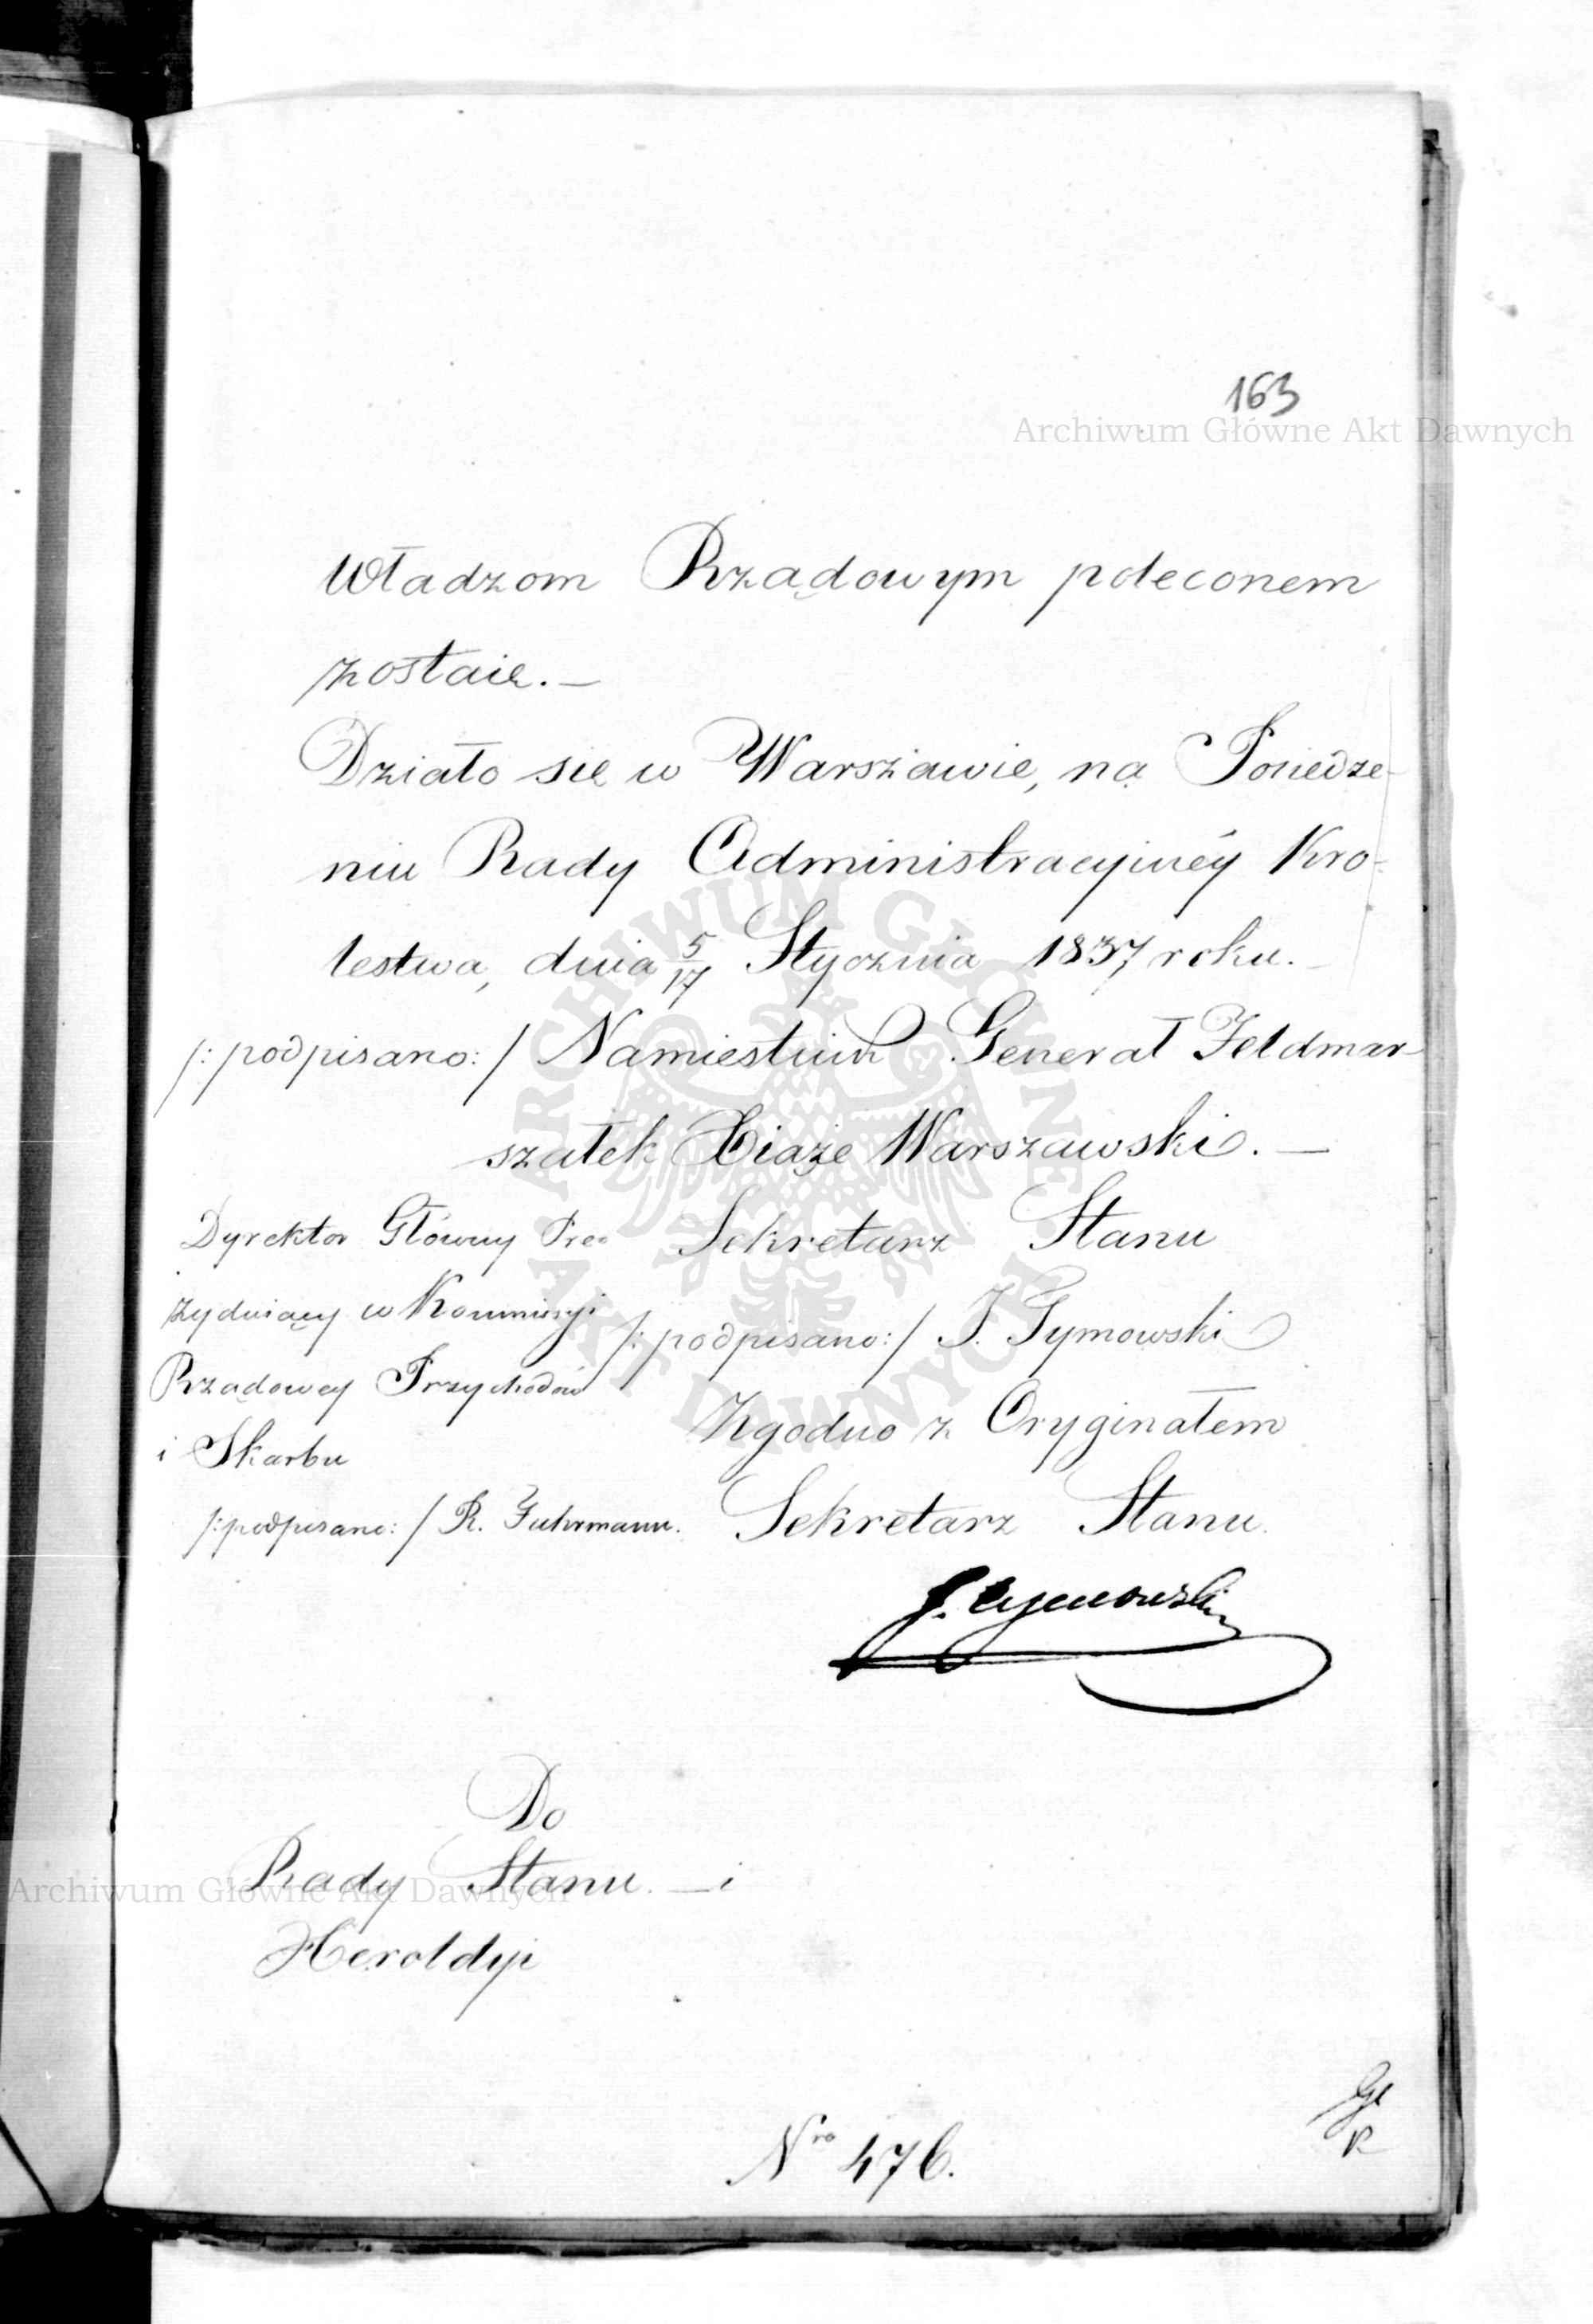 163
Archiwum Główne Akt Dawnych
Władzom Rządowym poleconem
zostaie.—
Działo się w Warszawie, na Posiedze-
niu Rady Administracyinéy Kro-
lestwa, dnia 5/17 Stycznia 1837 roku.—
/: podpisano:/ Namiestnik Generał Feldmar-
szałek Xiąże Warszawski.—
Dyrektor Główny Pre-
zyduiący w Kommissyi
Rządowey Przychodów
i Skarbu
/:podpisano:/ R. Fuhrmann.
Sekretarz Stanu
/:podpisano:/ J. Tymowski
Zgodno z Oryginałem
Sekretarz Stanu.
J. Tymowski
Do
Rady Stanu — i
Archiwum Główne Akt Dawnych
Heroldyi
Nro 476.
ARCHIWUM GŁÓWNE AKT DAWNYCH